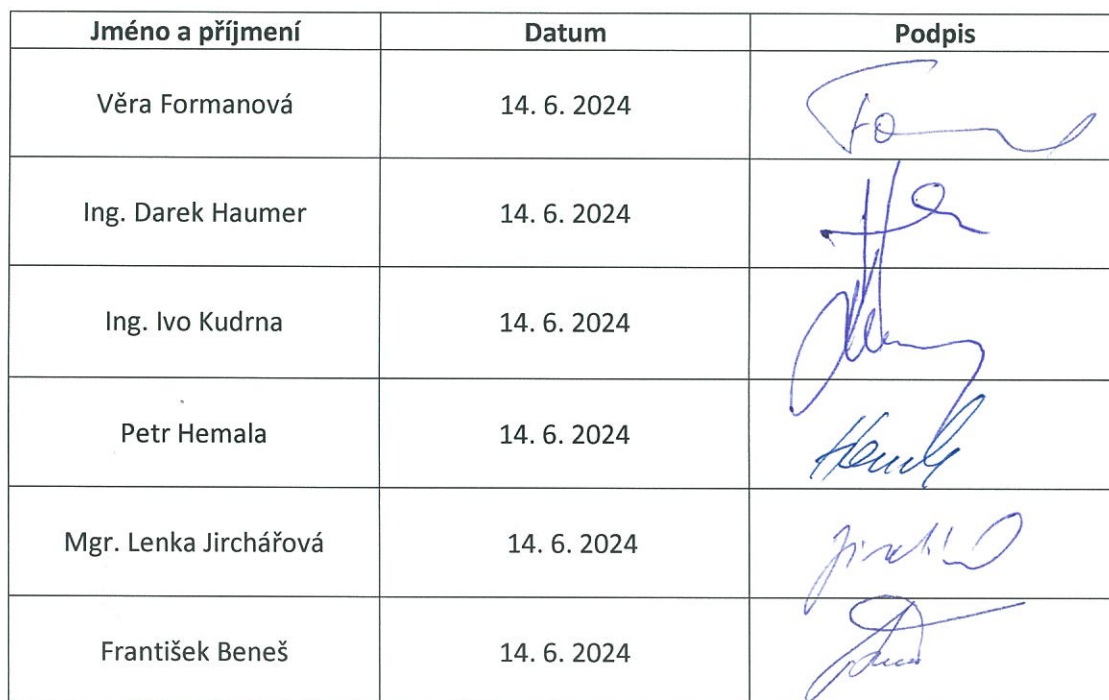 Jméno a příjmení Datum Podpis
Věra Formanová 14. 6. 2024
Ing. Darek Haumer 14. 6. 2024
Ing. Ivo Kudrna 14. 6. 2024
Petr Hemala 14. 6. 2024
Mgr. Lenka Jirchářová 14. 6. 2024
František Beneš 14. 6. 2024